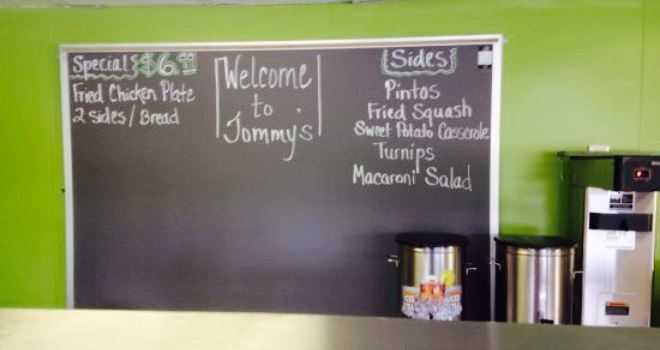 Special $6.99
Fried Chicken Plate
2 sides / Bread
Welcome
to
Tommy's
Sides
Pintos
Fried Squash
Sweet Potato Casserole
Turnips
Macaroni Salad